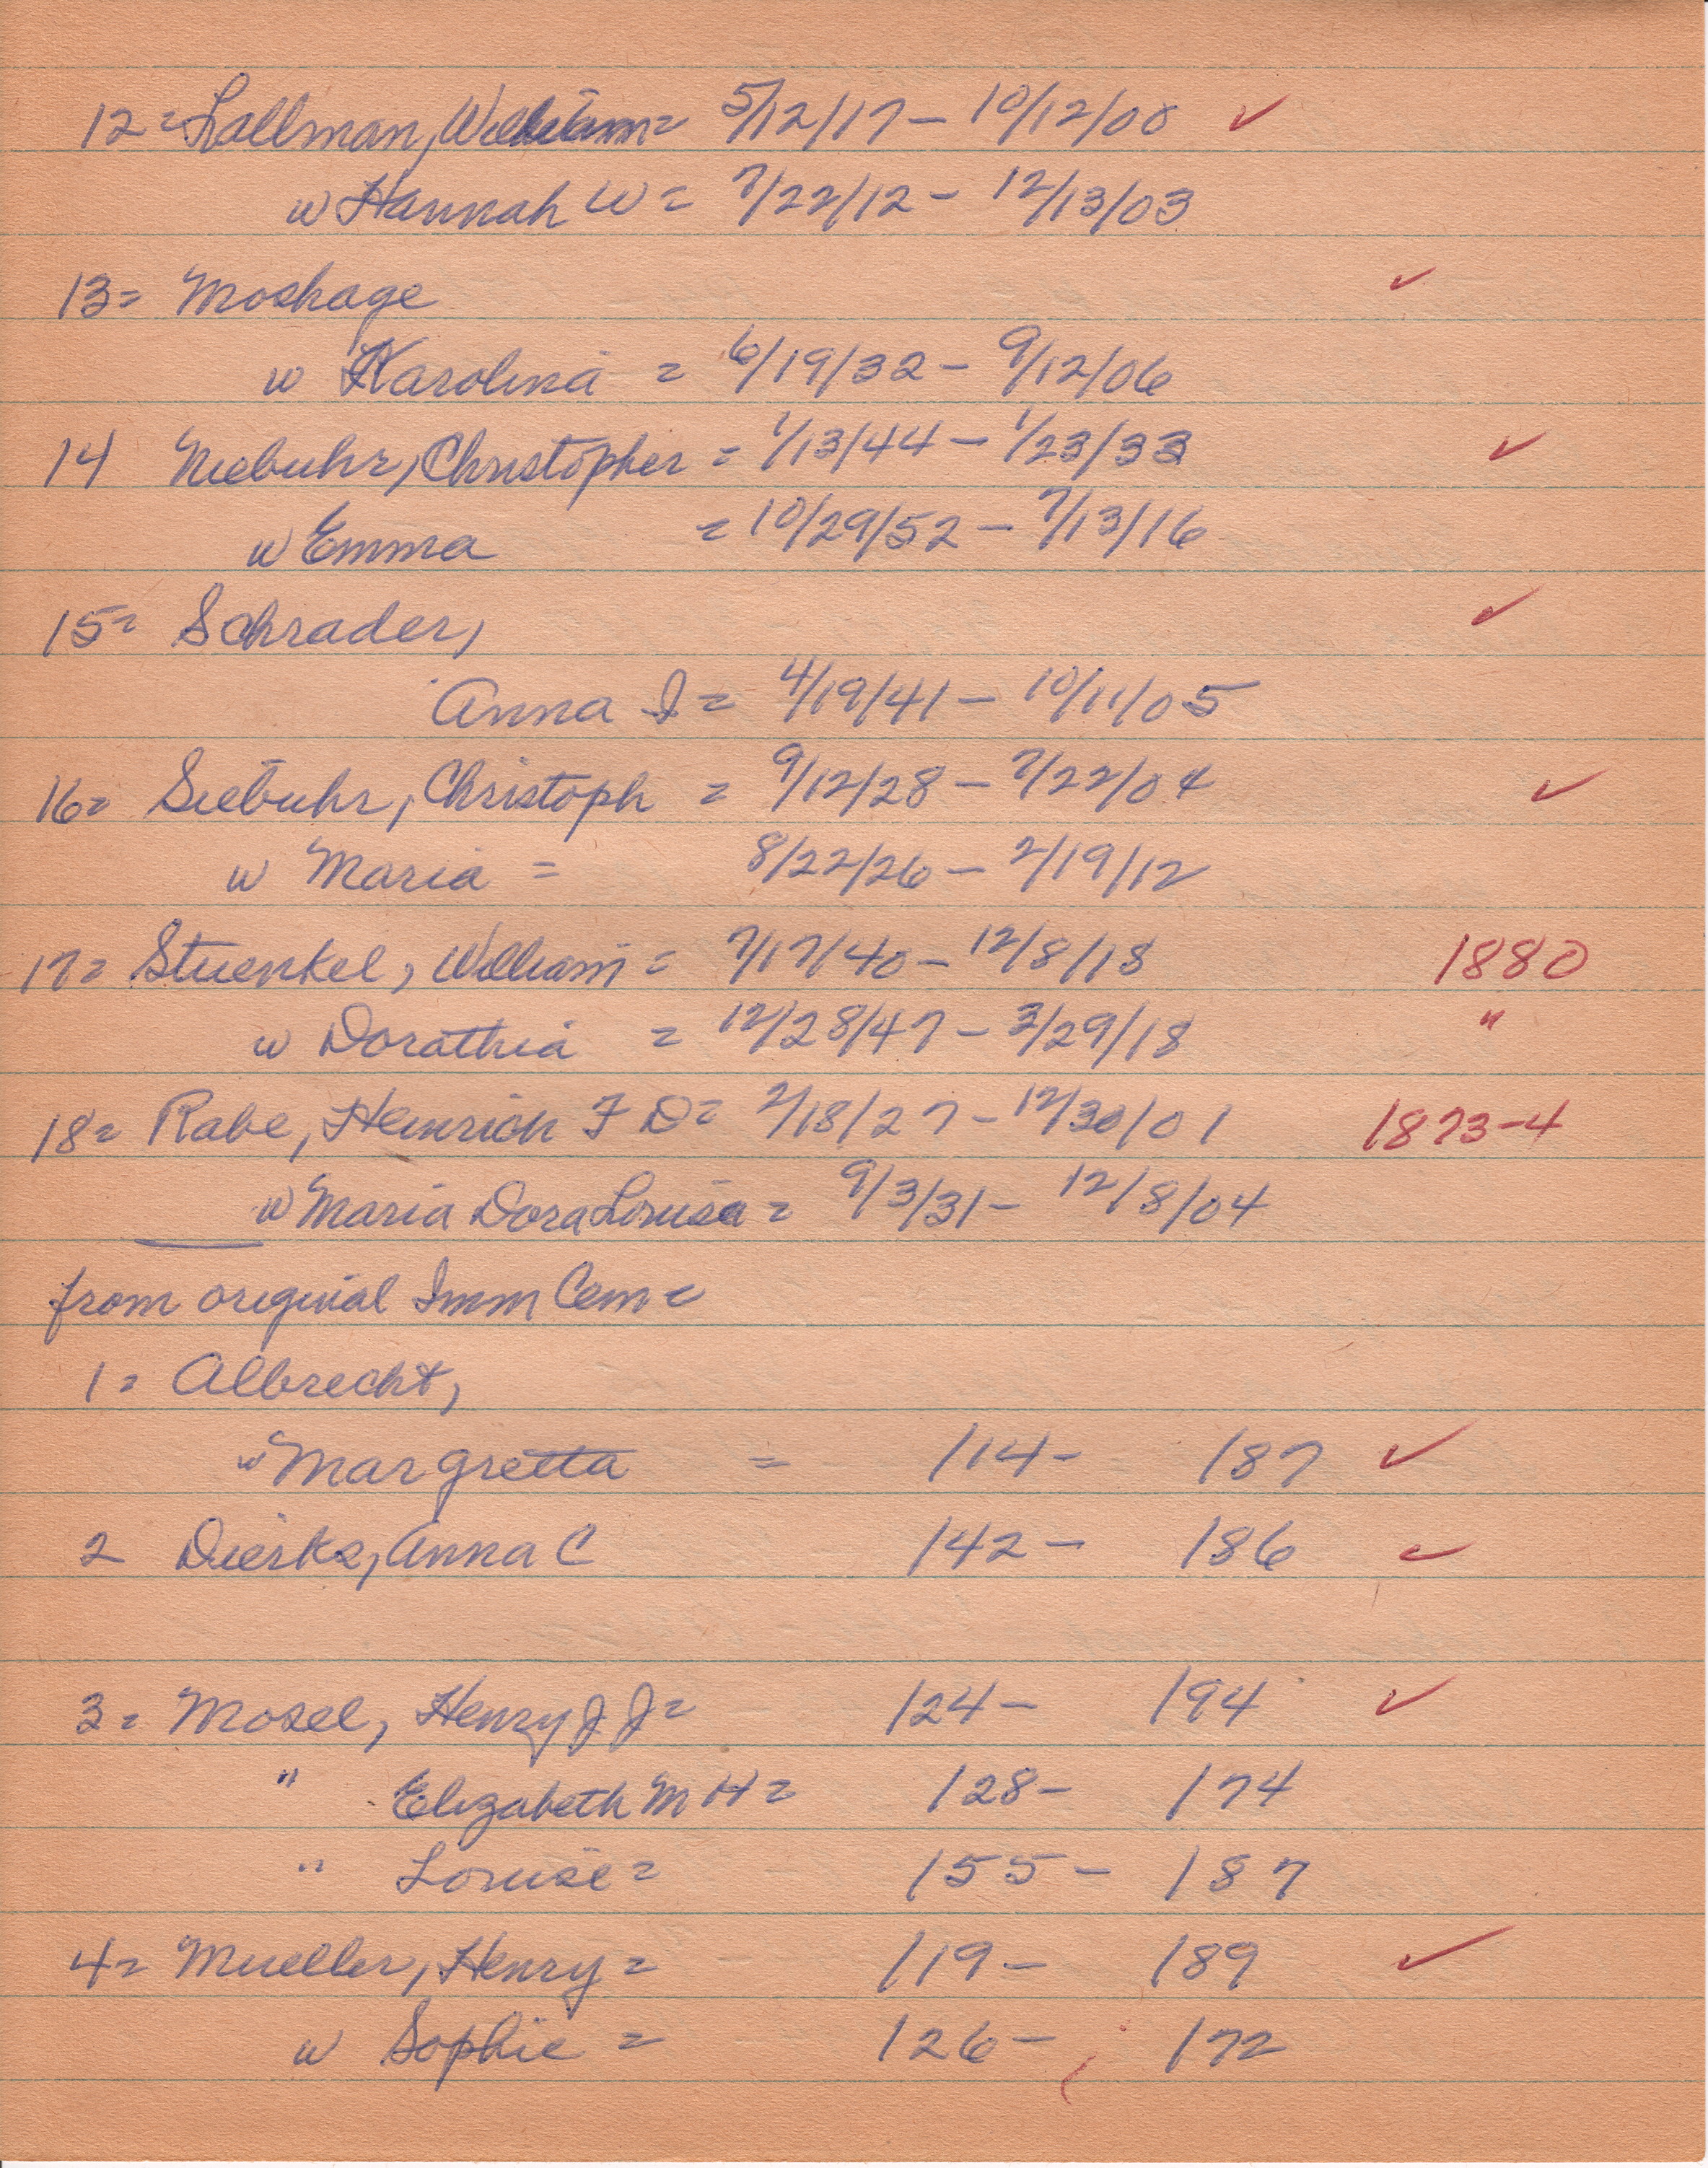 12= Lallman, William= 5/12/17 - 10/12/00 ✓
w Hannah W = 7/22/12 - 12/13/03
13= Moshage ✓
w Karolina = 6/19/32 - 9/12/06
14 Niebuhr, Christopher = 1/13/44 - 1/23/33 ✓
w Emma = 10/29/52 - 7/13/16
15= Schrader, ✓
Anna I = 4/19/41 - 10/11/05
16= Siebuhr, Christoph = 9/12/28 - 7/22/04 ✓
w Maria = 8/22/26 - 2/19/12
17= Stuenkel, William = 7/17/40 - 12/8/18 1880
w Dorathia = 12/28/47 - 3/29/18 "
18= Rabe, Heinrich F D= 2/18/27 - 12/30/01 1873-4
w Maria Dora Louisa = 9/3/31 - 12/8/04
from original Imm Cem =
1= Albrecht,
w Margretta = /14- /87 ✓
2 Dierks, Anna C /42- /86 ✓
3= Mosel, Henry J J= /24- /94 ✓
" Elizabeth M H= /28- /74
" Louise= /55- /87
4= Mueller, Henry= /19- /89 ✓
w Sophie = /26- /72